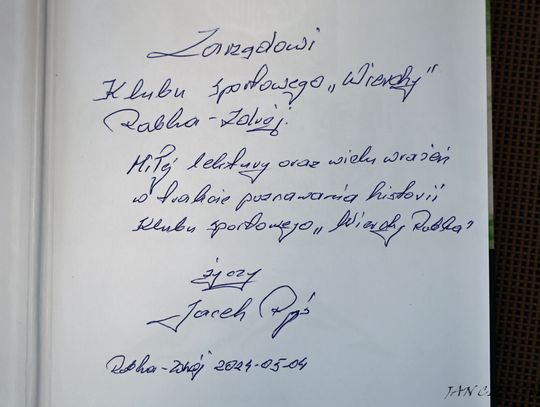 Zarządowi
Klubu sportowego „Wierchy"
Rabka-Zdrój.
Miłej lektury oraz wielu wrażeń
w trakcie poznawania historii
Klubu sportowego „Wierchy Rabka"
życzy
Jacek
Rabka-Zdrój 2024-05-04
JAN